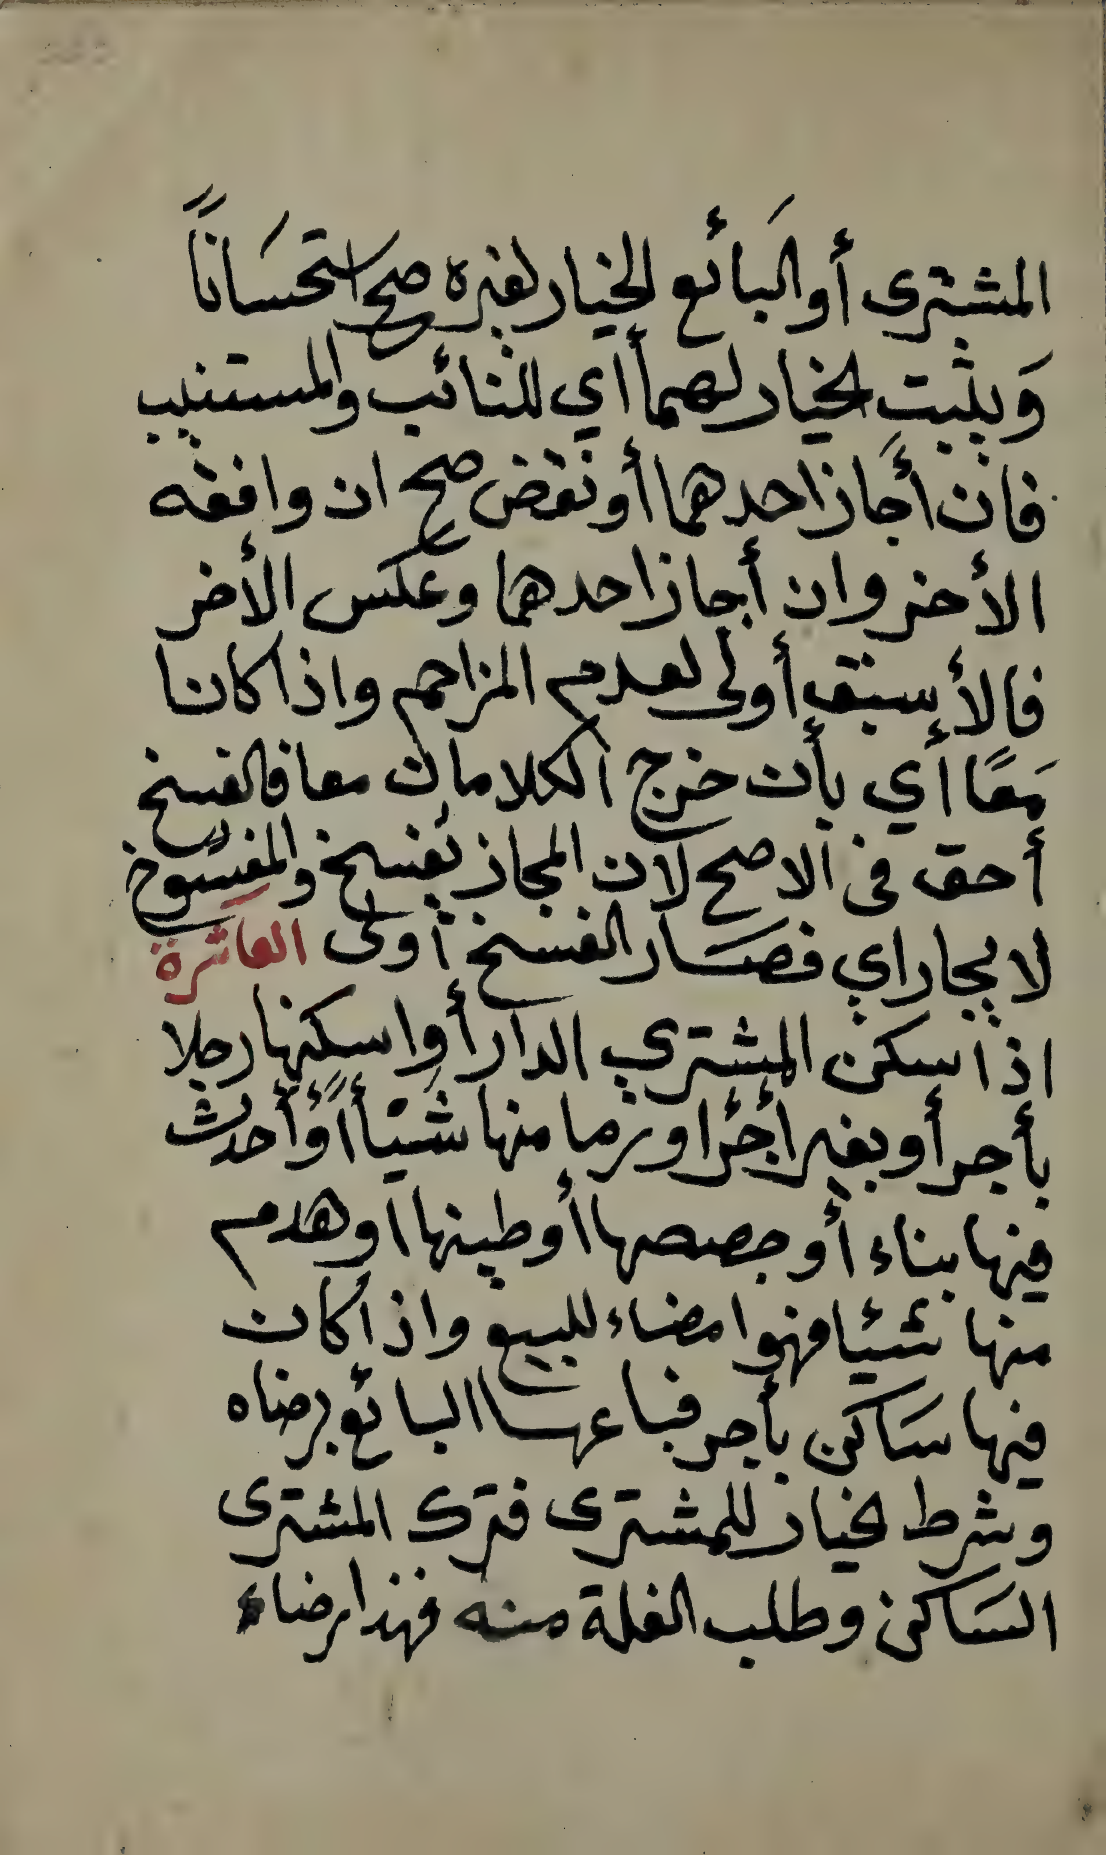 المشترى أو البائع الخيار لغيره صح استحساناً
وَيثبت الخيار لهما أي للنائب والمستنيب
فان أجاز احدهما أو نقض صح ان وافقه
الأخر وان أجاز احدهما وعكس الأخر
فالأسبق أولى لعدم المزاحم واذا كانا
مَعًا أي بأن خرج الكلامان معا فالفسخ
أحق فى الاصح لان المجاز يفسخ والمفسوخ
لا يجاز اي فصار الفسخ أولى العاشرة
اذا سكن المشتري الدار أو اسكنها رجلا
بأجر أو بغير أجْر او رما منها شيْأً أوْ أحدث
فيها بناء أو جصصها أو طينها او هدم
منها شيئا فهوا مضاء للبيع واذا كان
فيها سَاكن بأجر فباعها البائع برضاه
وشرط الخيار للمشترى فترك المشترى
السَاكن وطلب الغلة منه فهذا رضاء